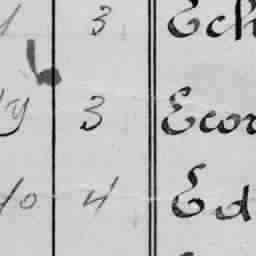 3 Ech
y 3 Ecor
10 4 Ed